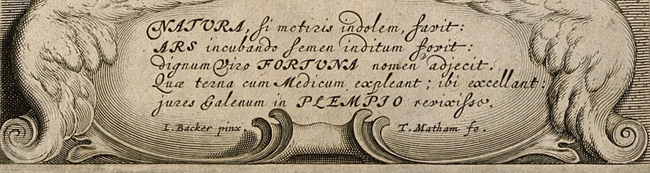 NATURA, si metiris indolem, favit:
ARS incubando semen inditum fovit:
dignum Viro FORTUNA nomen adjecit.
Quæ terna cum Medicum expleant; ibi excellant:
jures Galenum in PLEMPIO revixisse.
I. Backer pinx T. Matham fe.